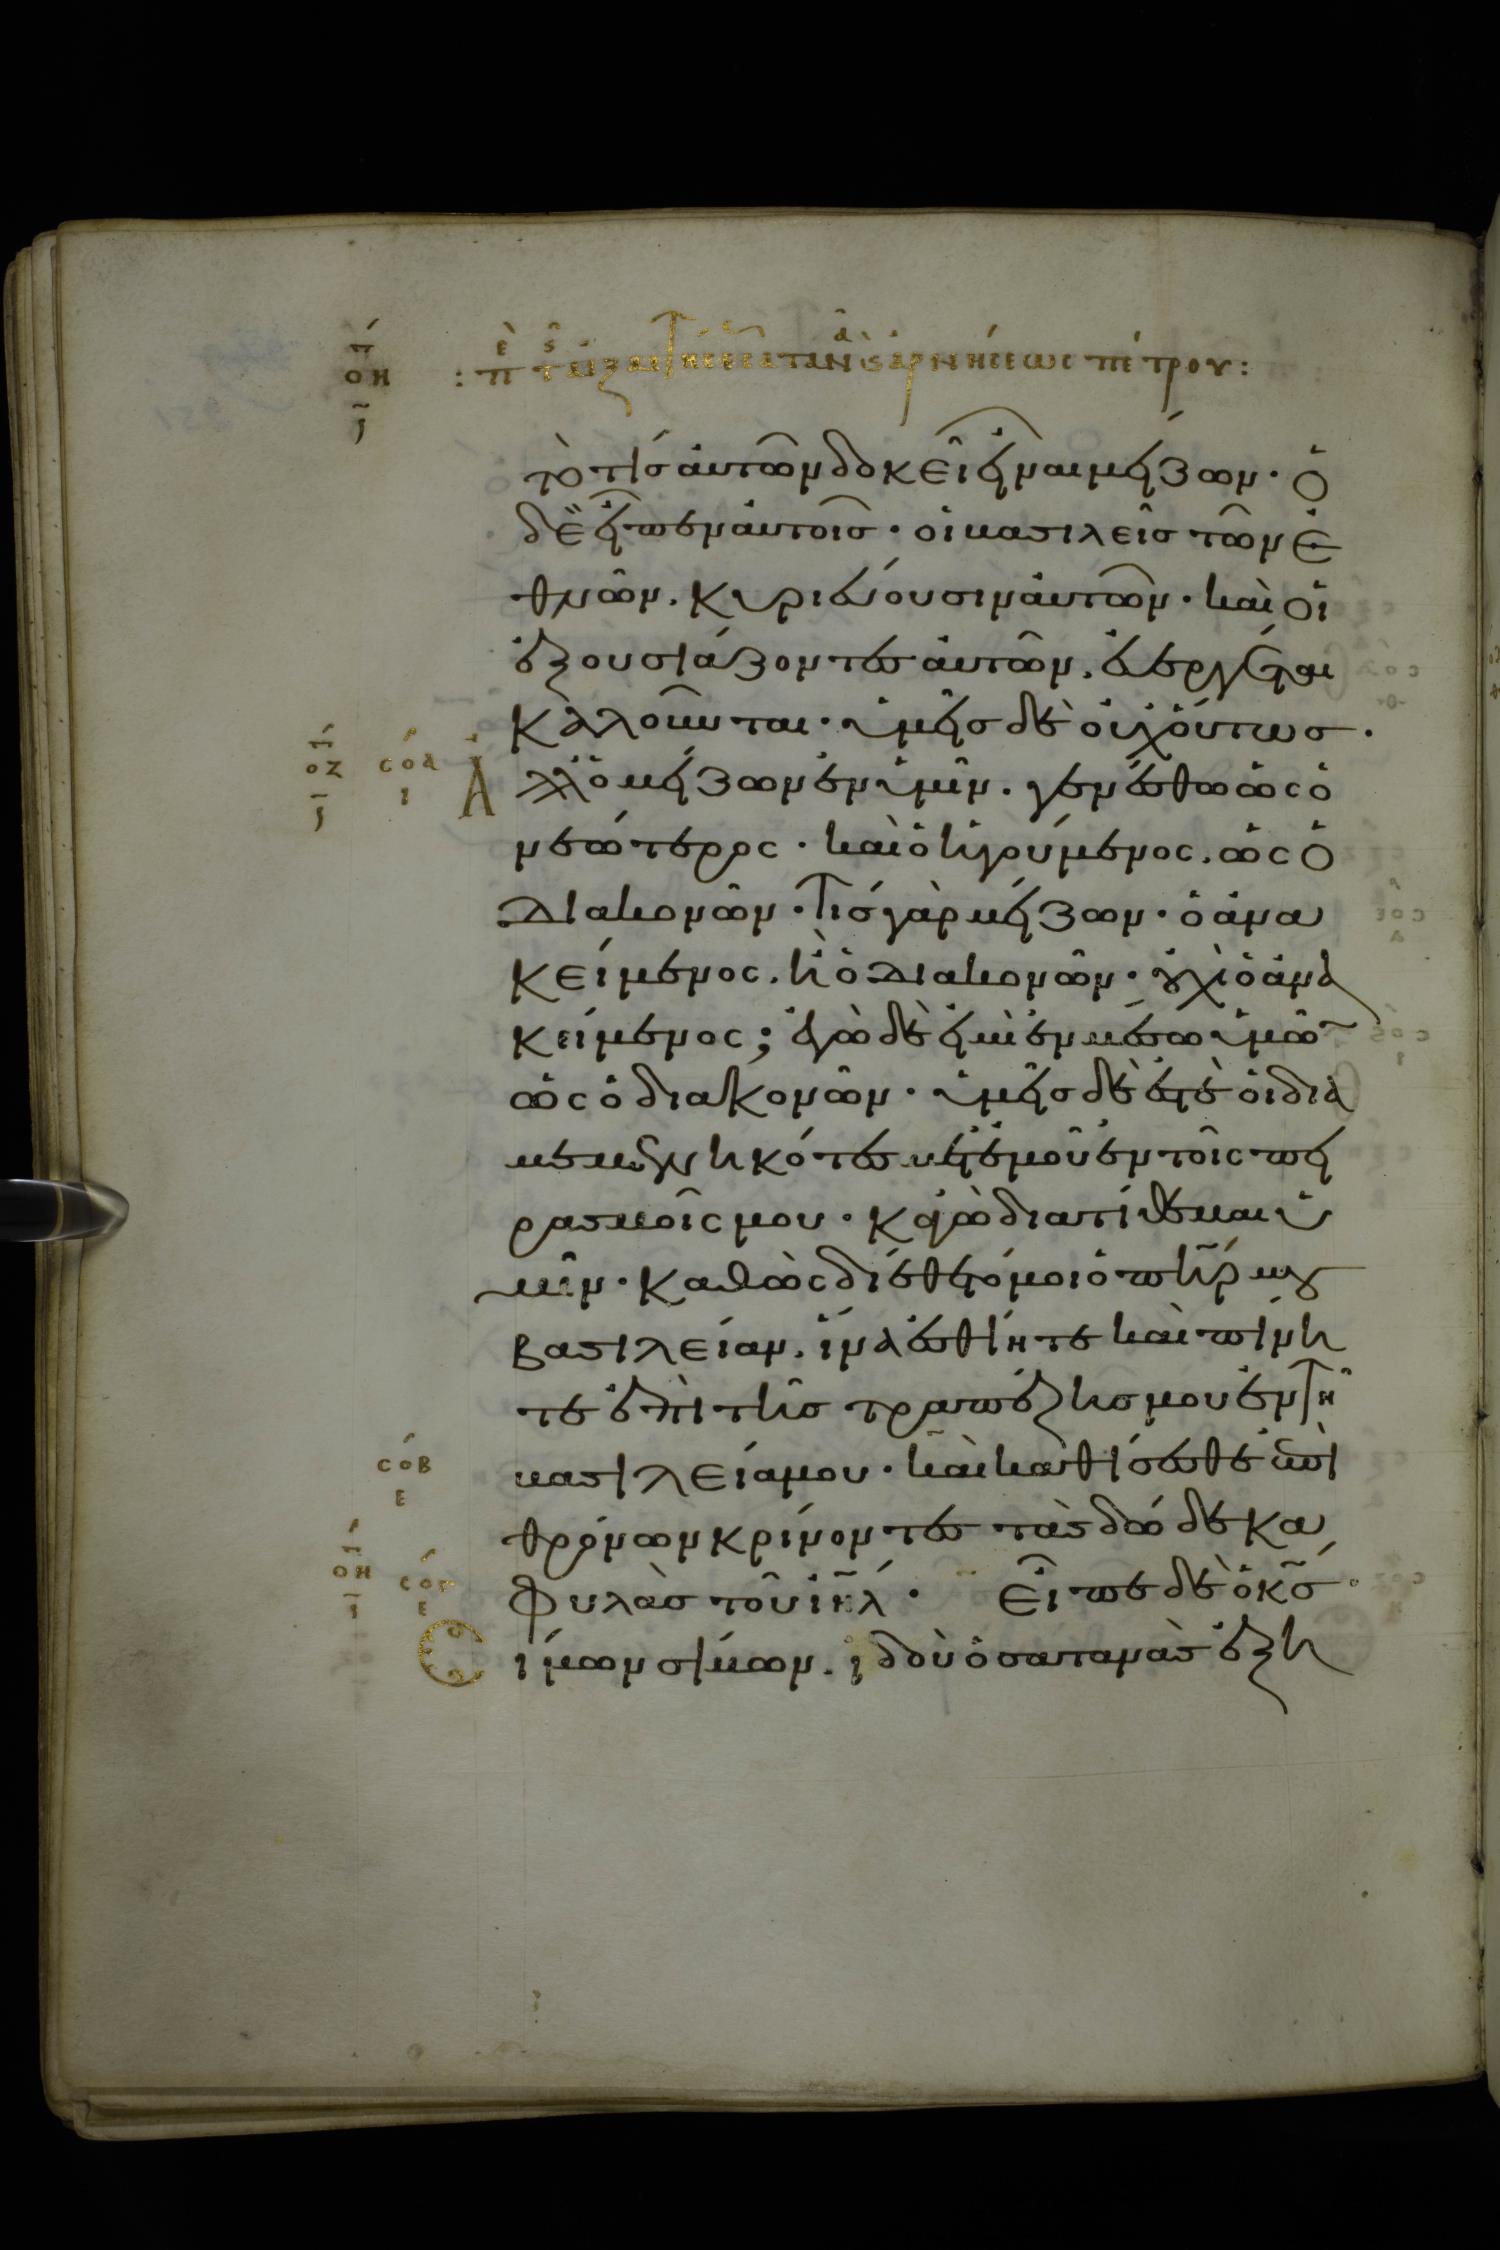 οη
: πε τῆς ἐξαιτήσεως τοῦ σατανᾶ ἀρνήσεως πέτρου :
τὸ τίσ αὐτῶν δοκεῖ εἶναι μείζων · ὁ
δὲ εἶπεν αὐτοῖσ · οἱ βασιλεῖσ τῶν ἐ
θνῶν . κυριεύουσιν αὐτῶν · καὶ οἱ
ἐξουσιάζοντεσ αὐτῶν . εὐεργέται
καλοῦνται · ὑμεῖσ δὲ οὐχ οὕτωσ ·
οζ σοα Ἀ
λλ' ὁ μείζων ἐν ὑμῖν . γενέσθω ὡς ὁ
νεώτερος · καὶ ὁ ἡγούμενος . ὡς ὁ
διακονῶν · τίσ γὰρ μείζων · ὁ ἀνα
κείμενος . ἢ ὁ διακονῶν · οὐχὶ ὁ ἀνα
κείμενος ; ἐγὼ δὲ εἰμὶ ἐν μέσω ὑμῶ
ὡς ὁ διακονῶν · ὑμεῖσ δὲ ἐστὲ οἱ δια
μεμενηκότεσ μετ' ἐμοῦ ἐν τοῖς πει
ρασμοῖς μου · κἀγὼ διατίθεμαι ὑ
μῖν · καθὼς διέθετό μοι ὁ πηρ μου
βασιλείαν . ἵνα ἐσθίητε καὶ πίνη
τε ἐπὶ τῆσ τραπέζησ μου ἐν τῆ
σοβ
ε
βασιλεία μου · καὶ καθίσεσθε ἐπὶ
θρόνων κρίνοντεσ τὰσ δώδεκα
οη σογ
ε
φυλὰσ τοῦ ιηλ · Εἶπε δὲ ὁ κσ ·
Σ
ίμων σίμων . ἰδοὺ ὁ σατανᾶσ ἐξη